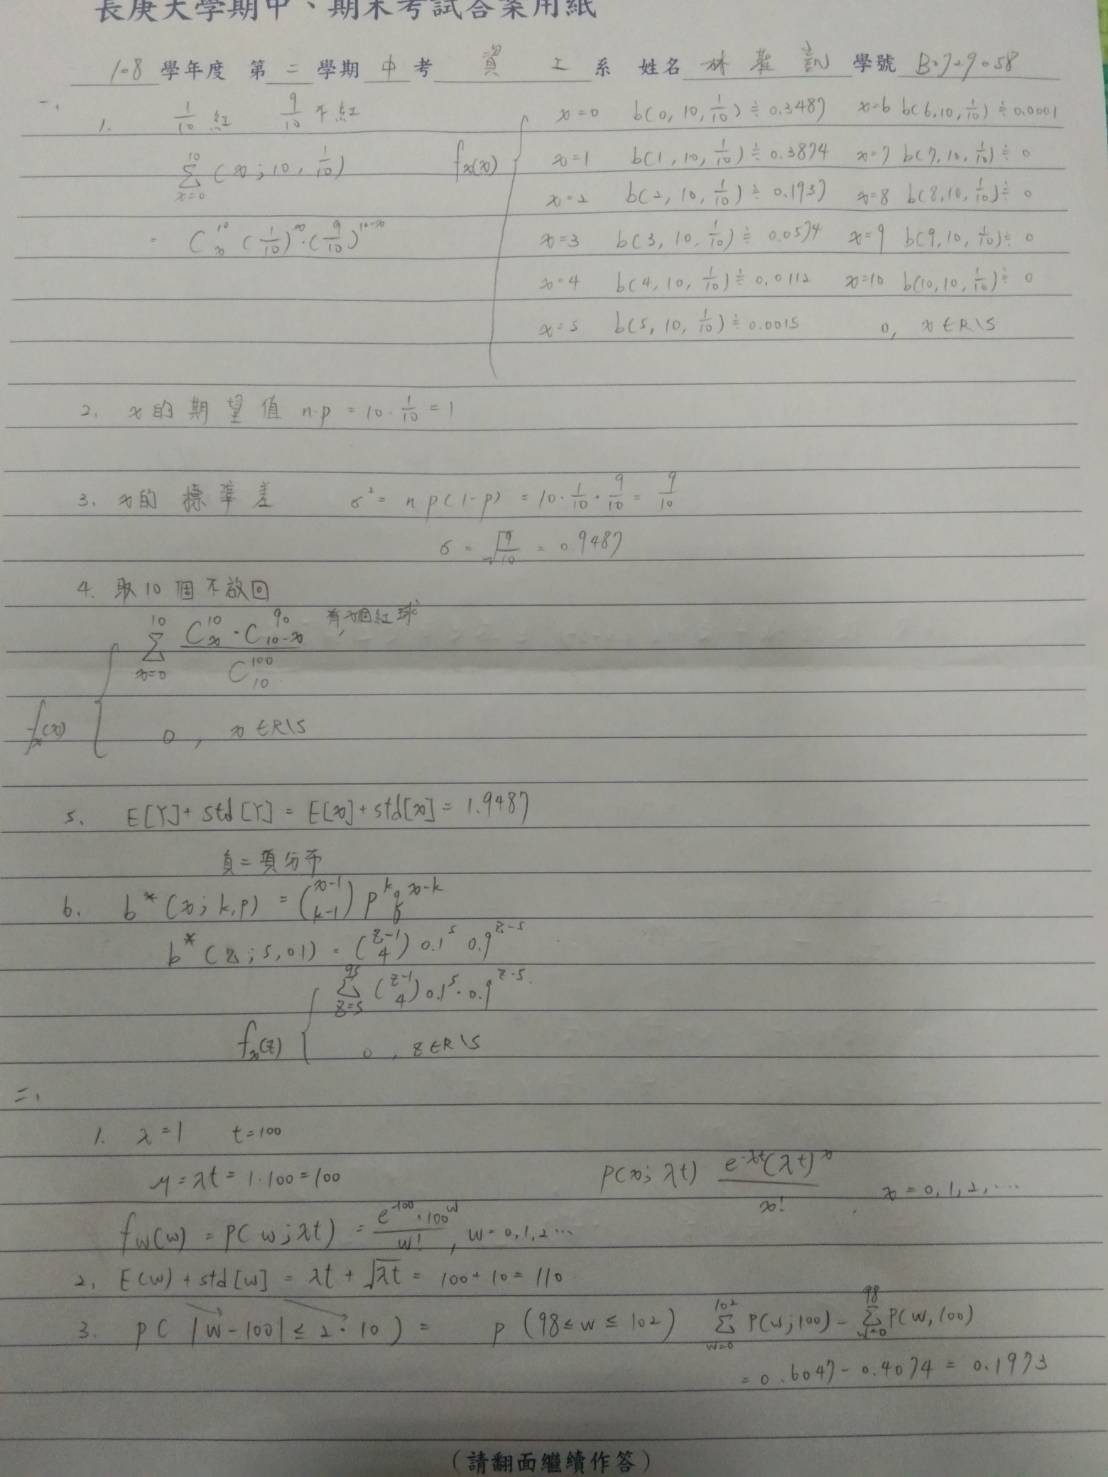 長庚大學期中、期末考試答案用紙
108 學年度 第 二 學期 中 考 資 工 系 姓名 林 學號 B0729058
一、
1. 1/10 紅 9/10 不紅
Σ_{x=0}^{10} (x; 10, 1/10)
= C_x^{10} (1/10)^x · (9/10)^{10-x}
f_x(x)
x=0 b(0, 10, 1/10) ≒ 0.3487 x=6 b(6, 10, 1/10) ≒ 0.0001
x=1 b(1, 10, 1/10) ≒ 0.3874 x=7 b(7, 10, 1/10) ≒ 0
x=2 b(2, 10, 1/10) ≒ 0.1937 x=8 b(8, 10, 1/10) ≒ 0
x=3 b(3, 10, 1/10) ≒ 0.0574 x=9 b(9, 10, 1/10) ≒ 0
x=4 b(4, 10, 1/10) ≒ 0.0112 x=10 b(10, 10, 1/10) ≒ 0
x=5 b(5, 10, 1/10) ≒ 0.0015 0, x∈R\S
2. x的期望值 n·p = 10·1/10 = 1
3. x的 標準差 σ² = n p(1-p) = 10·1/10·9/10 = 9/10
σ = √(9/10) = 0.9487
4. 取10個不放回
f_x(x) { Σ_{x=0}^{10} C_x^{10}·C_{10-x}^{90} / C_{10}^{100} , 有x個紅球
0 , x∈R\S
5. E[Y]+std[Y] = E[x]+std[x] = 1.9487
負二項分布
6. b*(x; k,p) = (x-1 k-1) p^k q^{x-k}
b*(z; 5, 0.1) = (z-1 4) 0.1^5 0.9^{z-5}
f_x(z) { Σ_{z=5}^{95} (z-1 4) 0.1^5·0.9^{z-5}
0 , z∈R\S
二、
1. λ=1 t=100
μ = λt = 1·100 = 100 P(x; λt) e^{-λt}(λt)^x / x! , x=0,1,2,…
f_W(w) = P(w; λt) = e^{-100}·100^w / w! , w=0,1,2…
2. E(w)+std[w] = λt+√λt = 100+10 = 110
3. P( |W-100| ≤ 2·10 ) = P(98≤w≤102) Σ_{w=0}^{102} P(w;100) - Σ_{w=0}^{98} P(w,100)
= 0.6047-0.4074 = 0.1973
(請翻面繼續作答)